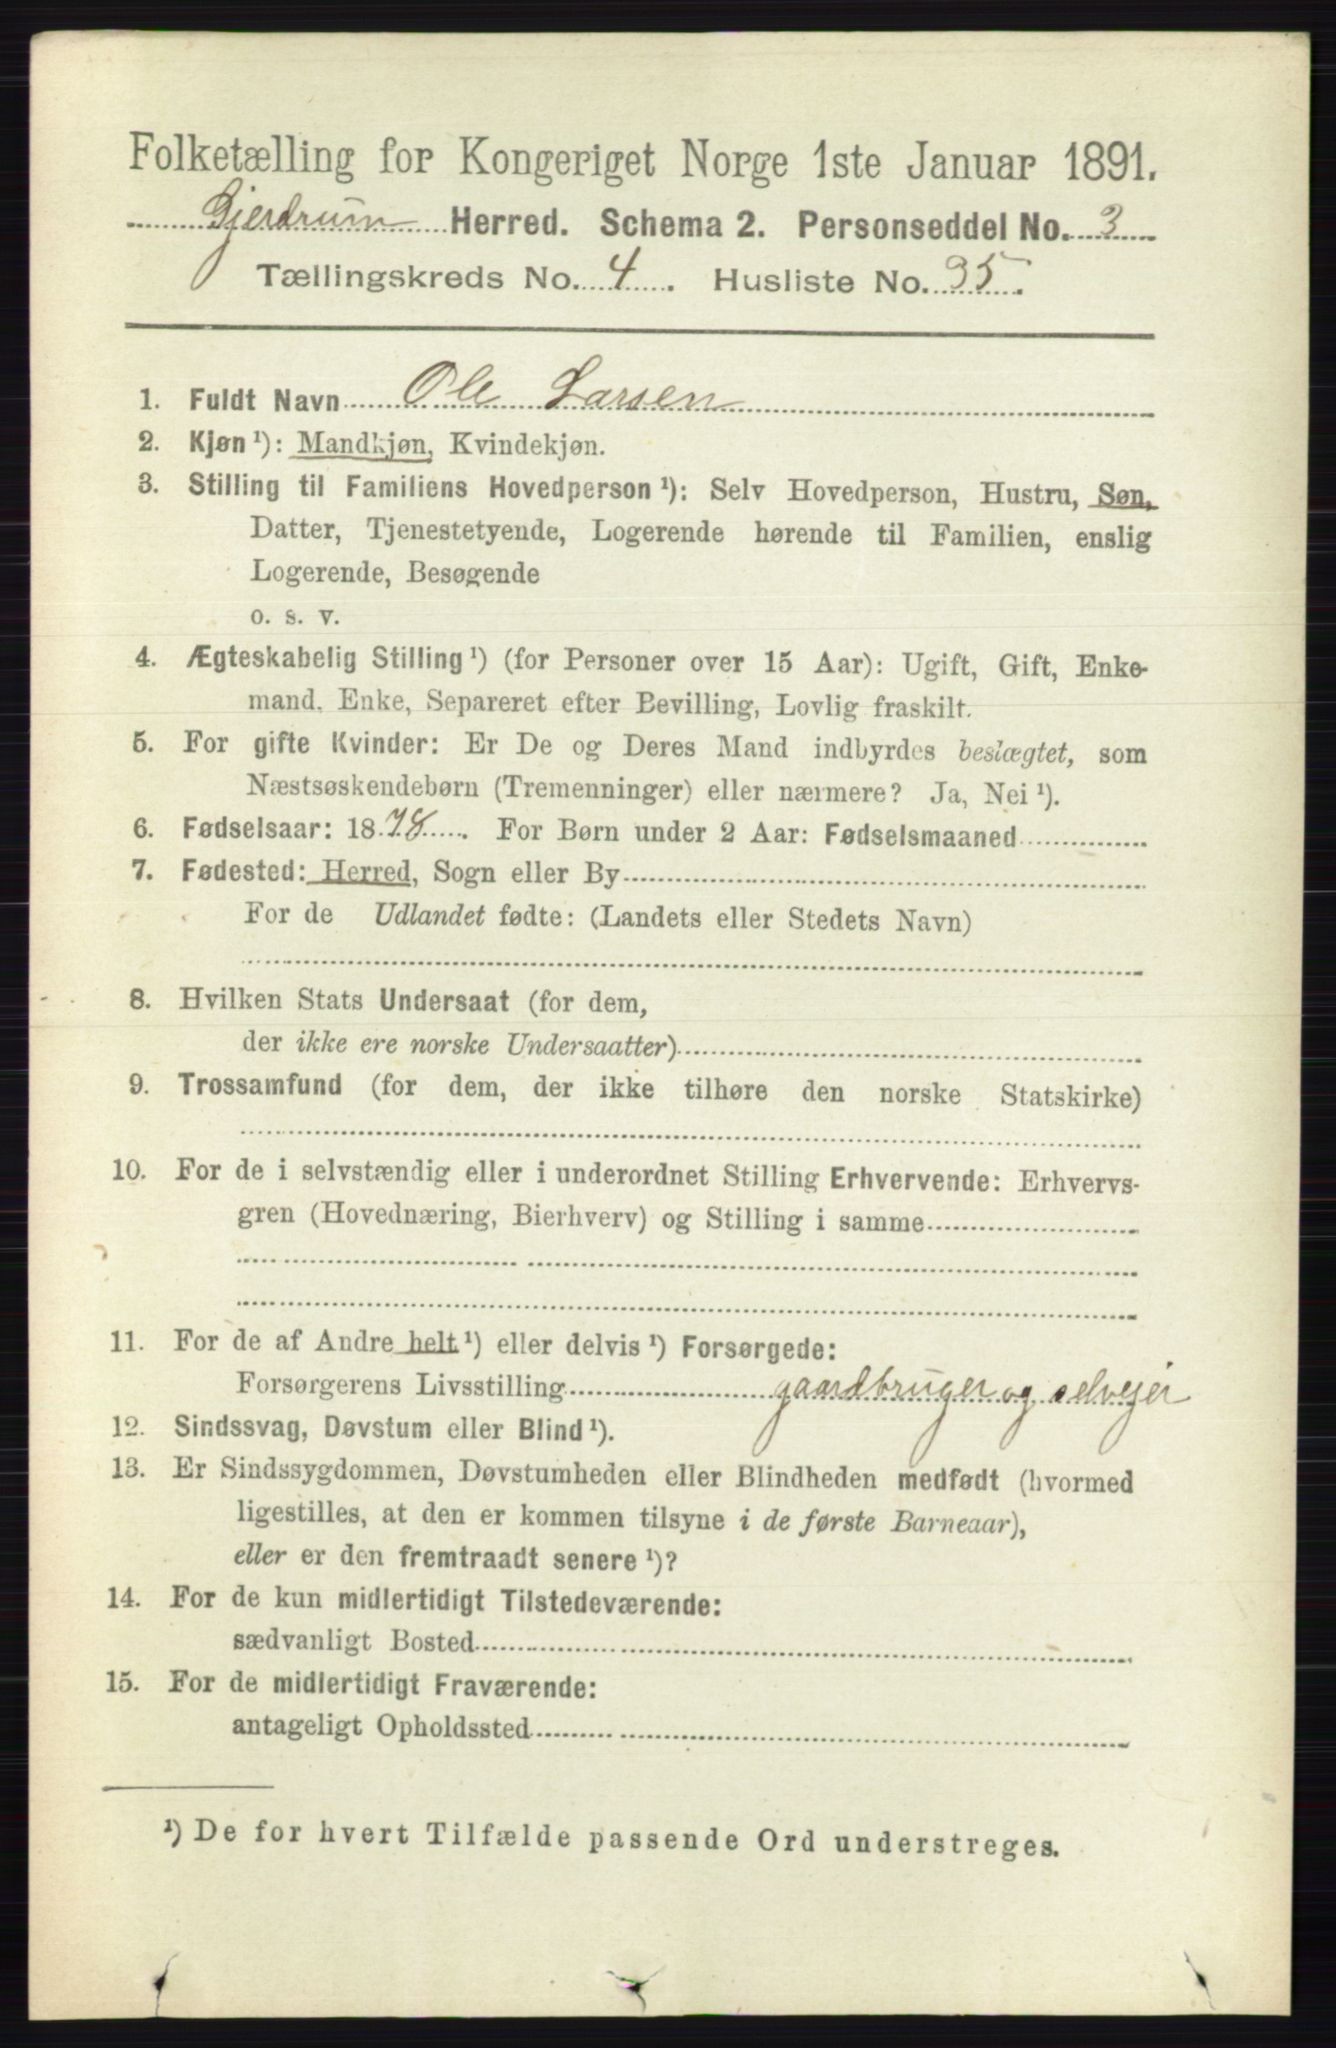 Folketælling for Kongeriget Norge 1ste Januar 1891.
Gjerdrum Herred. Schema 2. Personseddel No. 3
Tællingskreds No. 4. Husliste No. 35.
1. Fuldt Navn Ole Larsen
2. Kjøn¹): Mandkjøn, Kvindekjøn.
3. Stilling til Familiens Hovedperson¹): Selv Hovedperson, Hustru, Søn,
Datter, Tjenestetyende, Logerende hørende til Familien, enslig
Logerende, Besøgende
o. s. v.
4. Ægteskabelig Stilling¹) (for Personer over 15 Aar): Ugift, Gift, Enke-
mand, Enke, Separeret efter Bevilling, Lovlig fraskilt.
5. For gifte Kvinder: Er De og Deres Mand indbyrdes beslægtet, som
Næstsøskendebørn (Tremenninger) eller nærmere? Ja, Nei¹).
6. Fødselsaar: 1878. For Børn under 2 Aar: Fødselsmaaned
7. Fødested: Herred, Sogn eller By
For de Udlandet fødte: (Landets eller Stedets Navn)
8. Hvilken Stats Undersaat (for dem,
der ikke ere norske Undersaatter)
9. Trossamfund (for dem, der ikke tilhøre den norske Statskirke)
10. For de i selvstændig eller i underordnet Stilling Erhvervende: Erhvervs-
gren (Hovednæring, Bierhverv) og Stilling i samme
11. For de af Andre helt¹) eller delvis¹) Forsørgede:
Forsørgerens Livsstilling gaardbruger og selvejer
12. Sindssvag, Døvstum eller Blind¹).
13. Er Sindssygdommen, Døvstumheden eller Blindheden medfødt (hvormed
ligestilles, at den er kommen tilsyne i de første Barneaar),
eller er den fremtraadt senere¹)?
14. For de kun midlertidigt Tilstedeværende:
sædvanligt Bosted
15. For de midlertidigt Fraværende:
antageligt Opholdssted
¹) De for hvert Tilfælde passende Ord understreges.